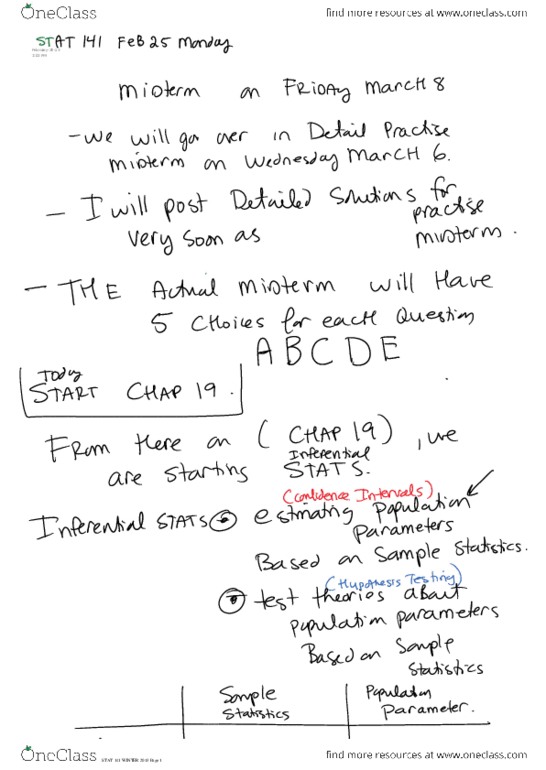 OneClass
find more resources at www.oneclass.com
STAT 141 FEB 25 Monday
MIDTERM on FRIDAY MARCH 8
- WE WILL go over in Detail Practise
MIDTERM on Wednesday MARCH 6.
- I will post Detailed Solutions for
practise
very soon as
MIDTERM.
- THE Actual MIDTERM will Have
5 CHoices for each Question
A B C D E
Today
START CHAP 19.
FROM Here on (CHAP 19), we
INFERENTIAL
are starting STATS.
(Confidence Intervals)
Inferential STATS estimating Population
Parameters
Based on Sample Statistics.
(Hypothesis Testing)
test theories about
population parameters
Based on Sample
Statistics
Sample Population
Statistics Parameter.
OneClass
find more resources at www.oneclass.com